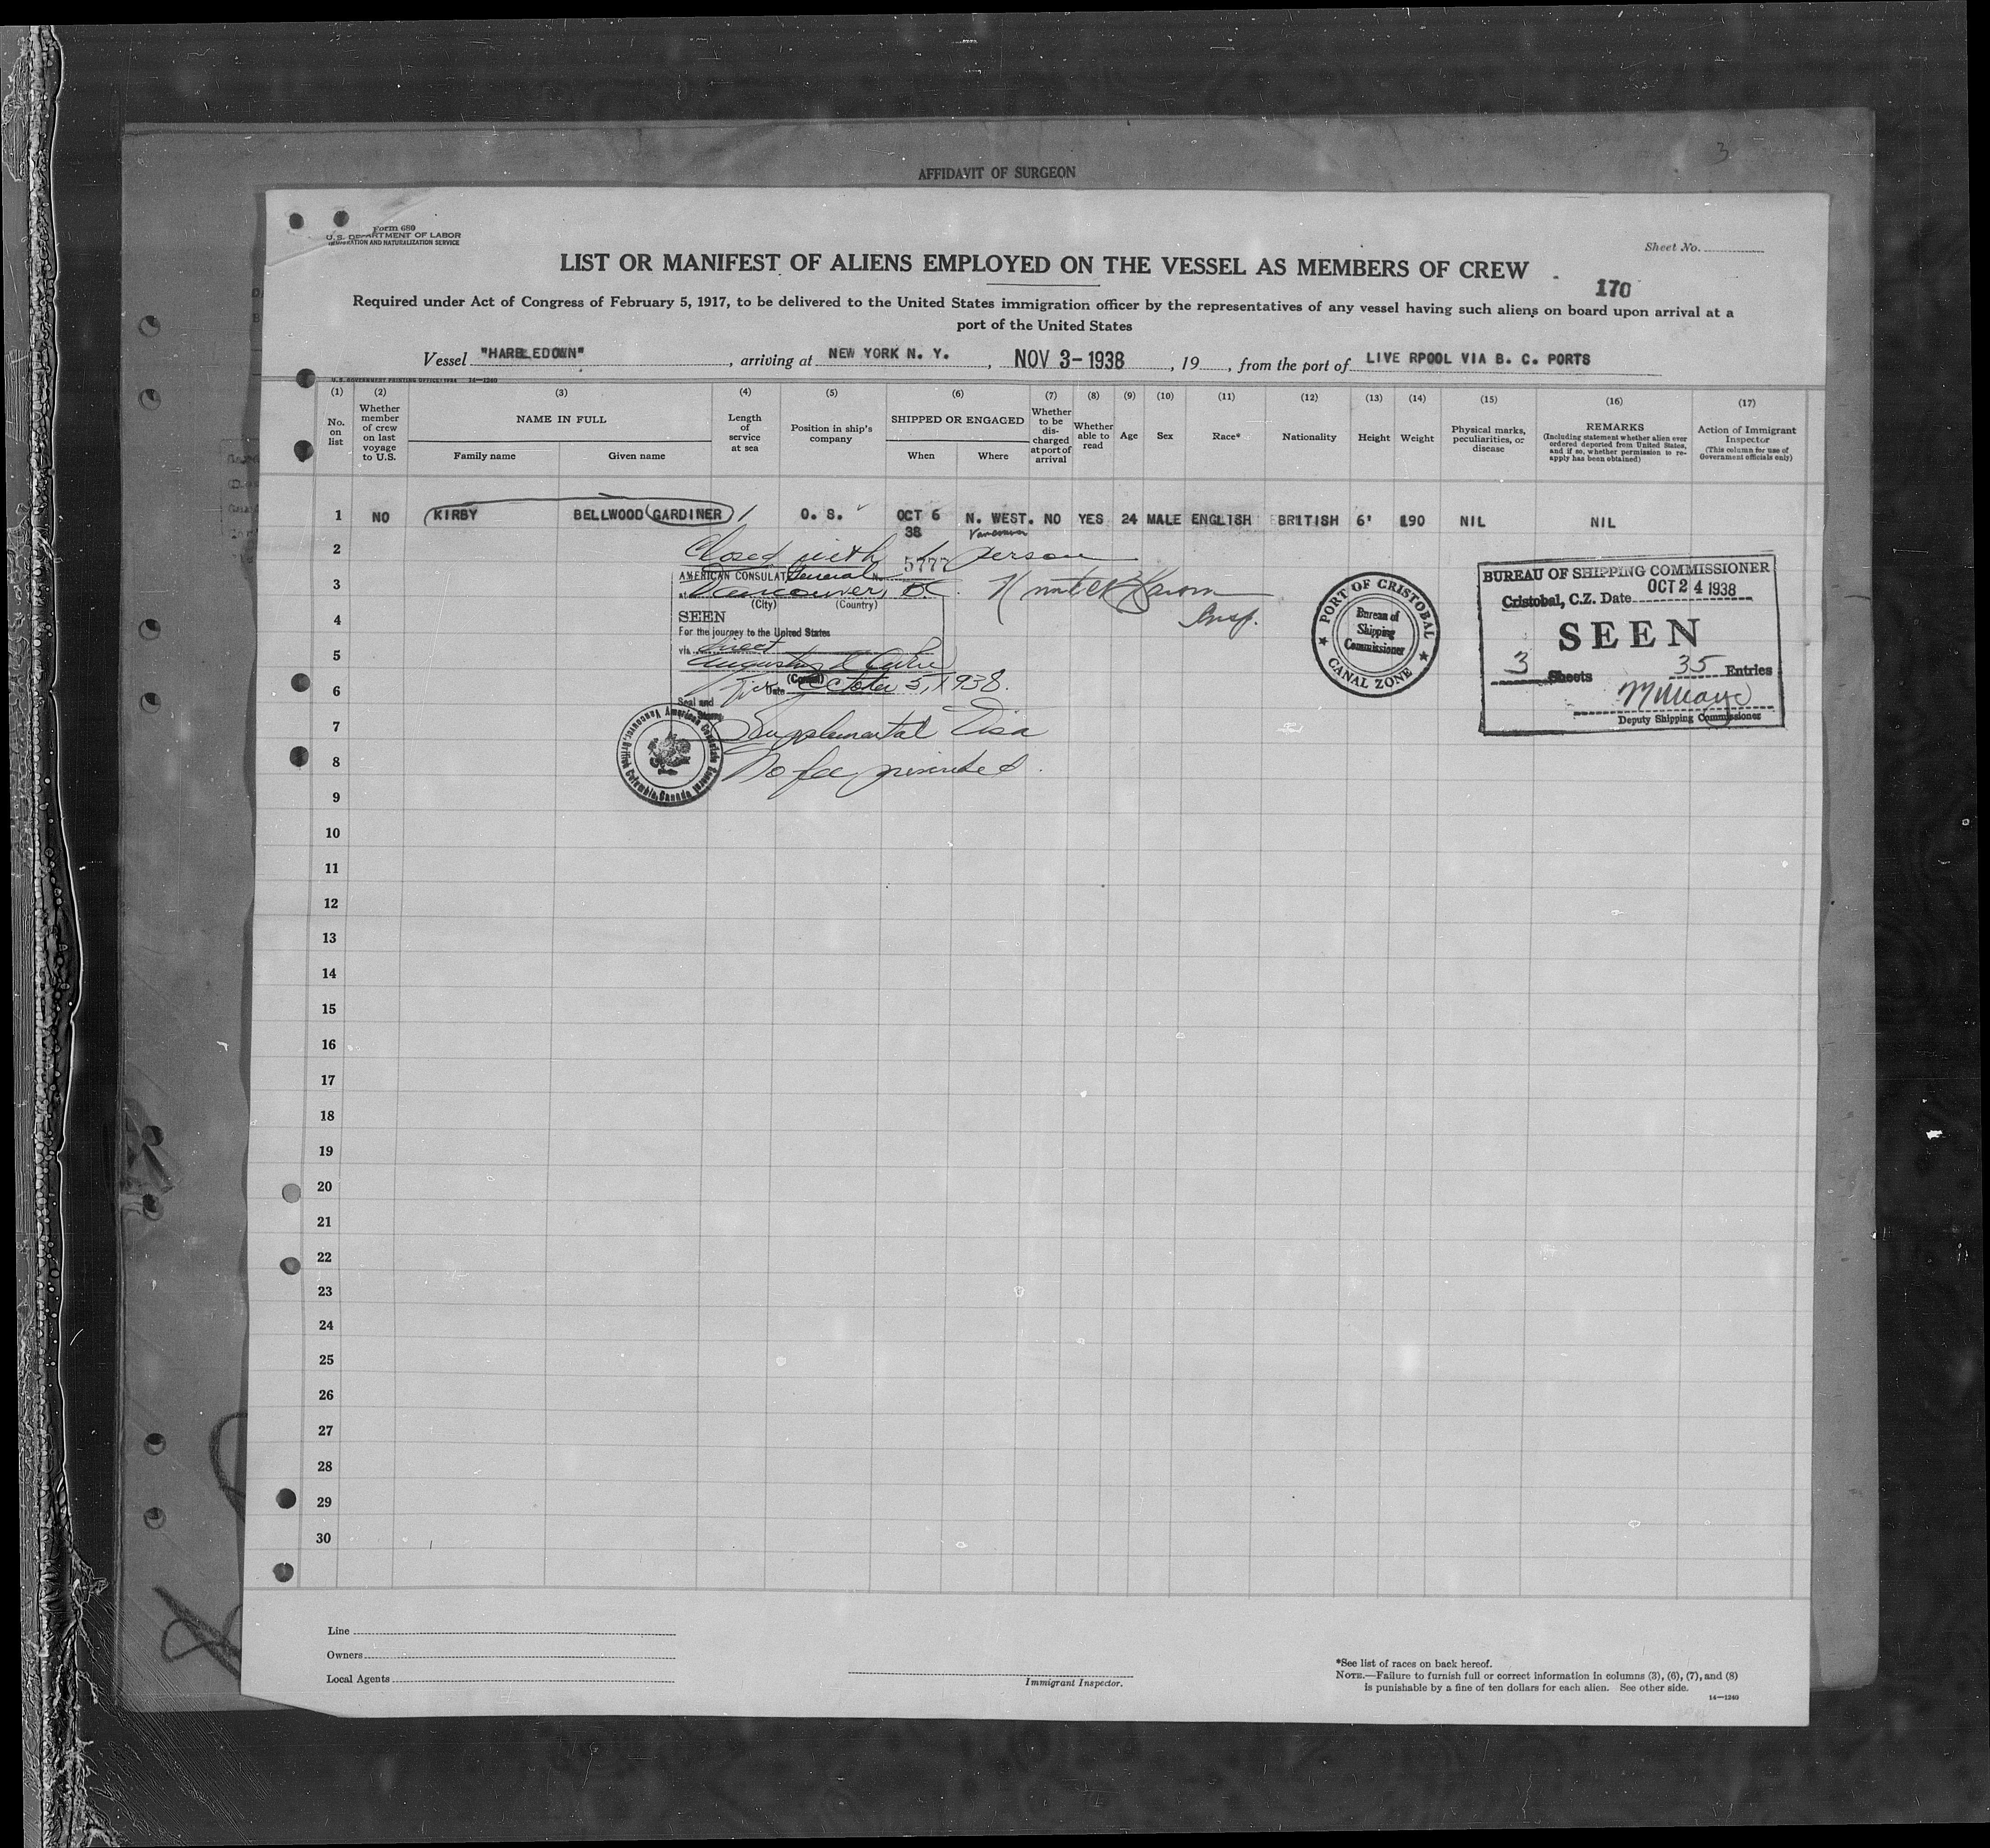 3
AFFIDAVIT OF SURGEON
Form 680
U.S. DEPARTMENT OF LABOR
IMMIGRATION AND NATURALIZATION SERVICE
Sheet No.
LIST OR MANIFEST OF ALIENS EMPLOYED ON THE VESSEL AS MEMBERS OF CREW
170
Required under Act of Congress of February 5, 1917, to be delivered to the United States immigration officer by the representatives of any vessel having such aliens on board upon arrival at a
port of the United States
Vessel "HARBLEDOWN", arriving at NEW YORK N. Y., NOV 3-1938, 19, from the port of LIVE RPOOL VIA B. C. PORTS
U.S. GOVERNMENT PRINTING OFFICE: 1934 14-1240
(1) (2) (3) (4) (5) (6) (7) (8) (9) (10) (11) (12) (13) (14) (15) (16) (17)
No. on list
Whether member of crew on last voyage to U.S.
NAME IN FULL
Family name Given name
Length of service at sea
Position in ship's company
SHIPPED OR ENGAGED
When Where
Whether to be discharged at port of arrival
Whether able to read
Age
Sex
Race*
Nationality
Height
Weight
Physical marks, peculiarities, or disease
REMARKS
(Including statement whether alien ever ordered deported from United States, and if so, whether permission to re-apply has been obtained)
Action of Immigrant Inspector
(This column for use of Government officials only)
1 NO KIRBY BELLWOOD GARDINER O. S. OCT 6 38 N. WEST. NO YES 24 MALE ENGLISH BRITISH 6' 190 NIL NIL
Vancouver
2
Closed with 1 person
5777
AMERICAN CONSULATE General
3
at Vancouver, B.C.
(City) (Country)
Insp.
4
SEEN
For the journey to the United States
5
via direct
(Consul)
6
Date October 5, 1938.
Seal and
7
Supplemental Visa
8
No fee prescribed.
American Consulate General Vancouver, British Columbia, Canada
PORT OF CRISTOBAL
Bureau of
Shipping
Commissioner
CANAL ZONE
BUREAU OF SHIPPING COMMISSIONER
Cristobal, C.Z. Date OCT 24 1938
SEEN
3 Sheets 35 Entries
Deputy Shipping Commissioner
9
10
11
12
13
14
15
16
17
18
19
20
21
22
23
24
25
26
27
28
29
30
Line
Owners
Local Agents
Immigrant Inspector.
*See list of races on back hereof.
NOTE.—Failure to furnish full or correct information in columns (3), (6), (7), and (8)
is punishable by a fine of ten dollars for each alien. See other side.
14-1240